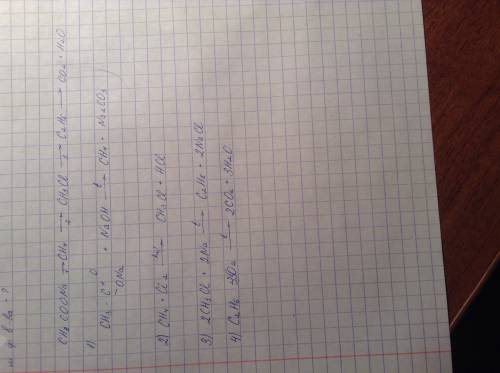 CH3COONa → CH4 → CH3Cl → C2H6 → CO2 + H2O
1)
CH3 - C = O + NaOH t→ CH4 + Na2CO3
- ONa
2) CH4 + Cl2 hν→ CH3Cl + HCl
3) 2CH3Cl + 2Na t→ C2H6 + 2NaCl
4) C2H6 t→ 2CO2 + 3H2O